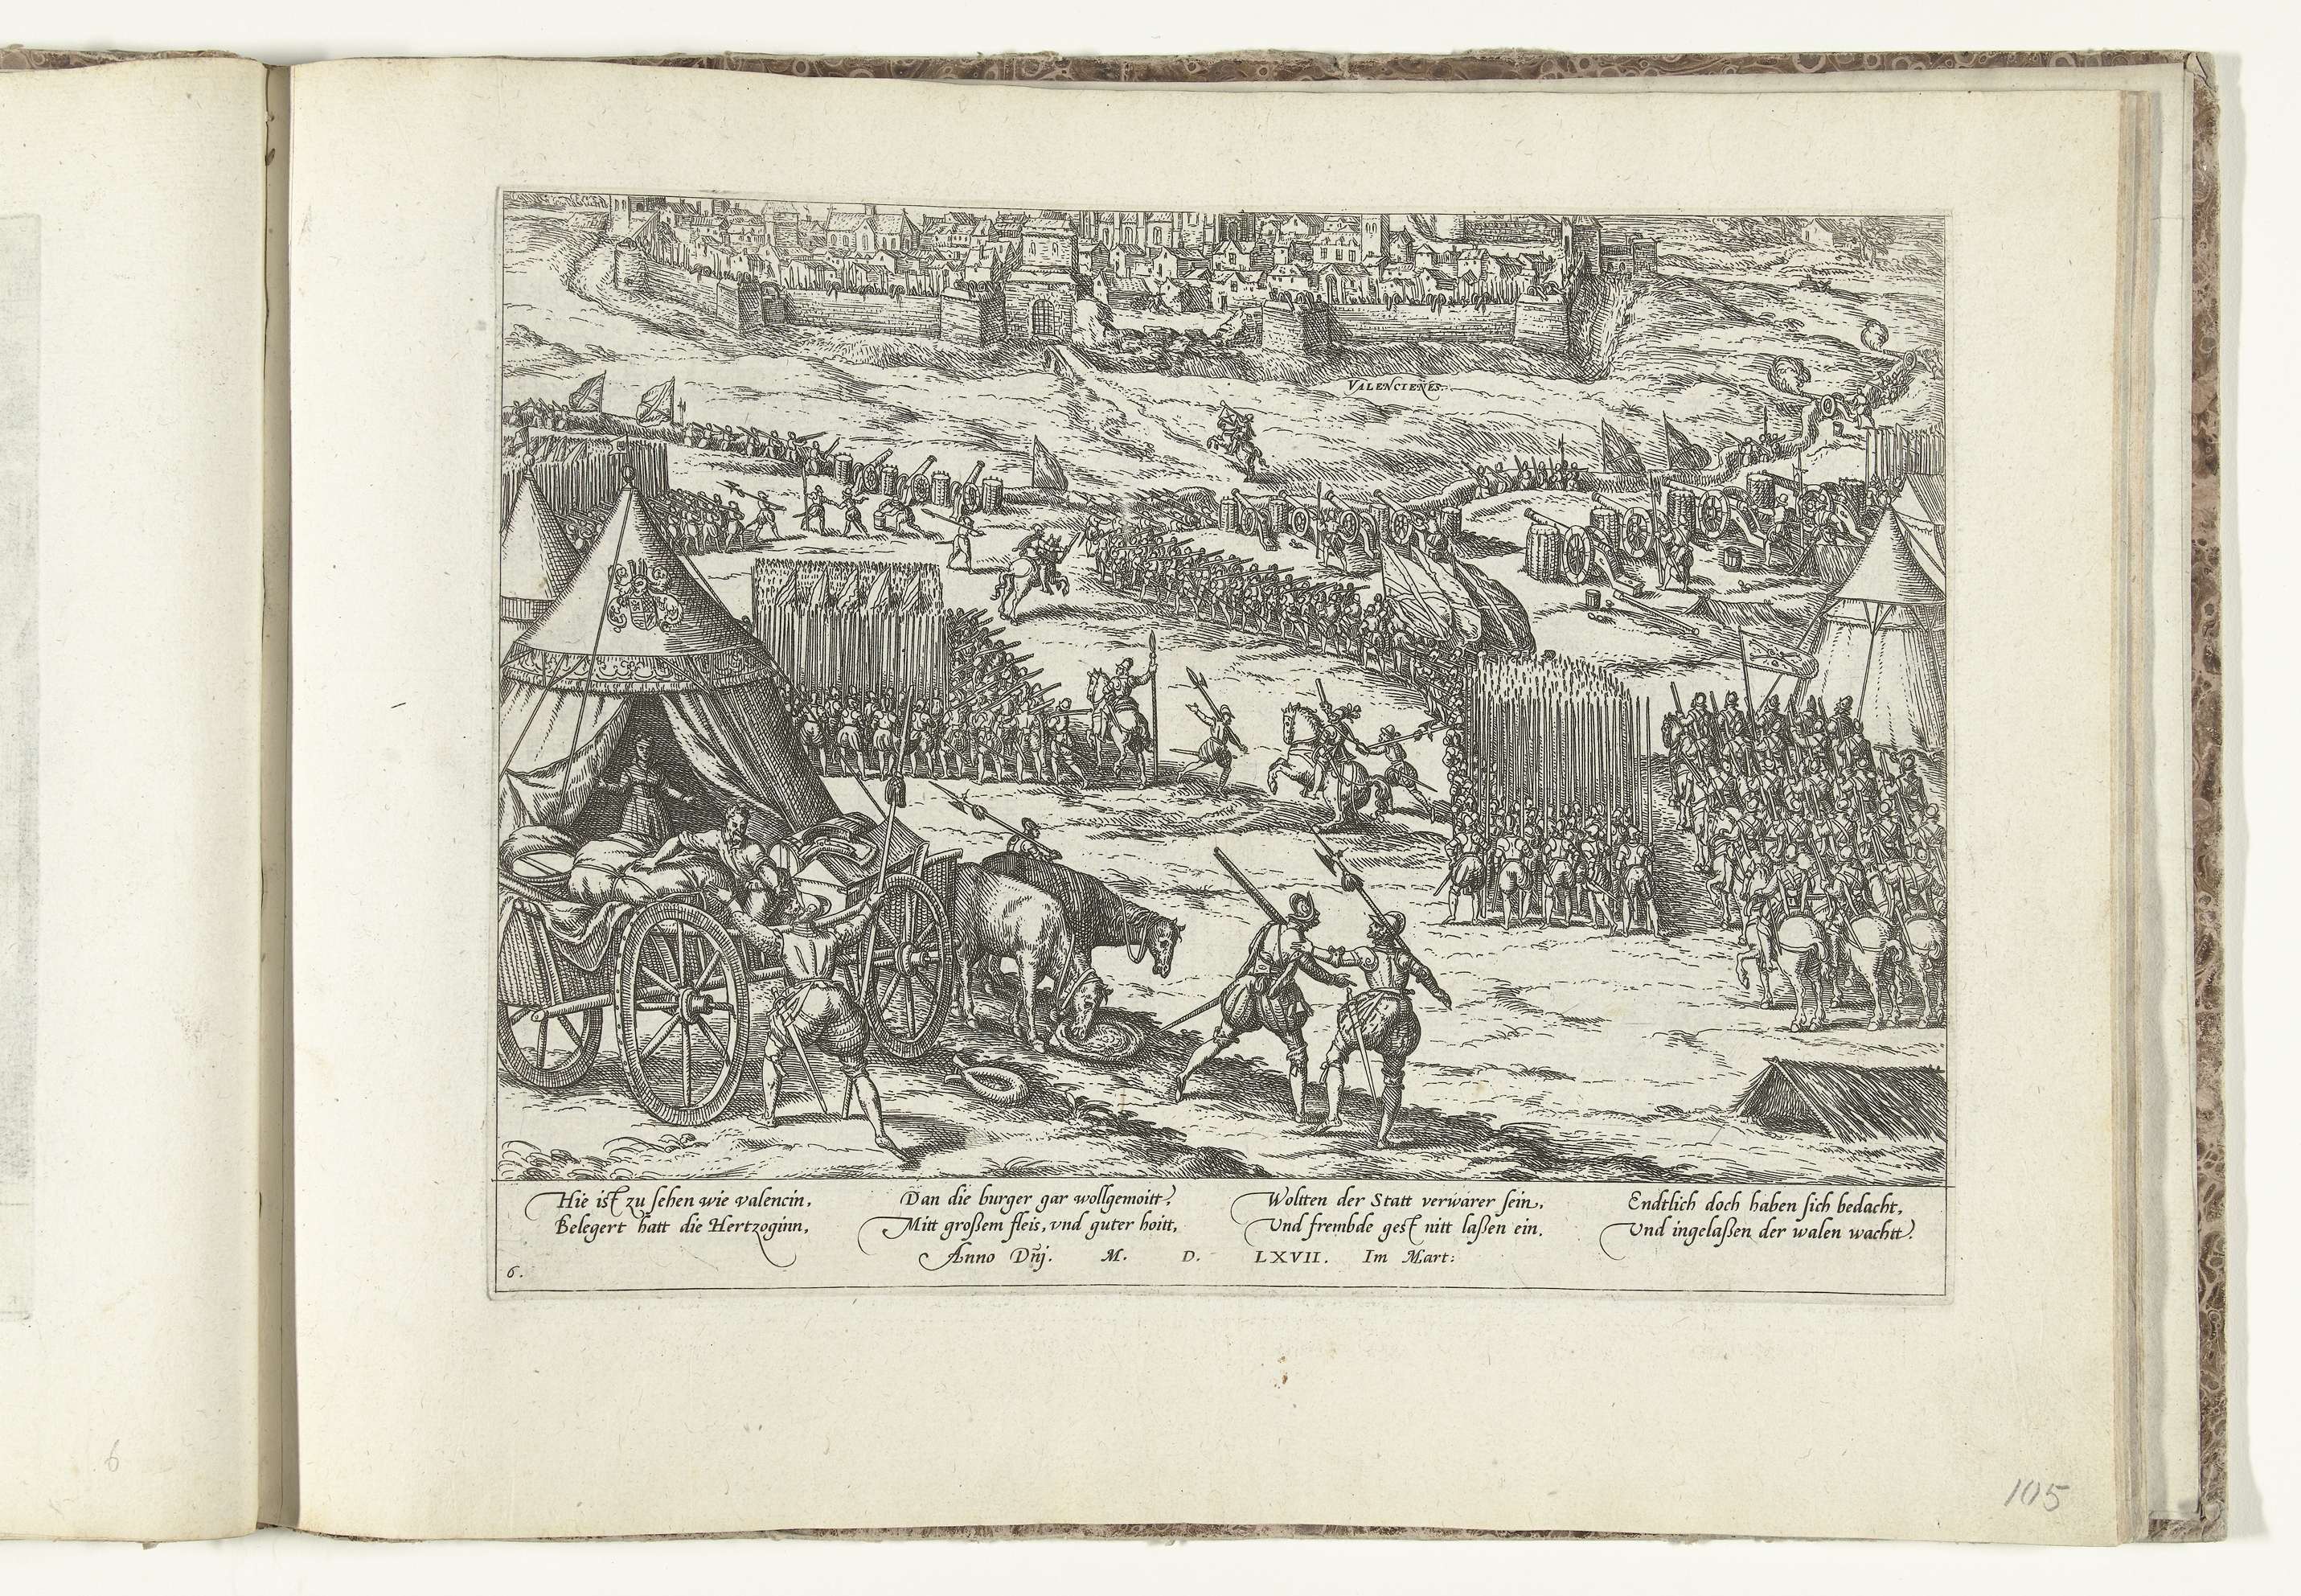 VALENCIENES.
Hie ist zu sehen wie valencin,
Belegert hatt die Hertzoginn,
Dan die burger gar wollgemoitt,
Mitt großem fleis, vnd guter hoitt,
Woltten der Statt verwarer sein,
Und frembde gest nitt laßen ein.
Endtlich doch haben sich bedacht,
Und ingelaßen der walen wachtt.
Anno Dñj. M. D. LXVII. Im Mart:
6.
6
105